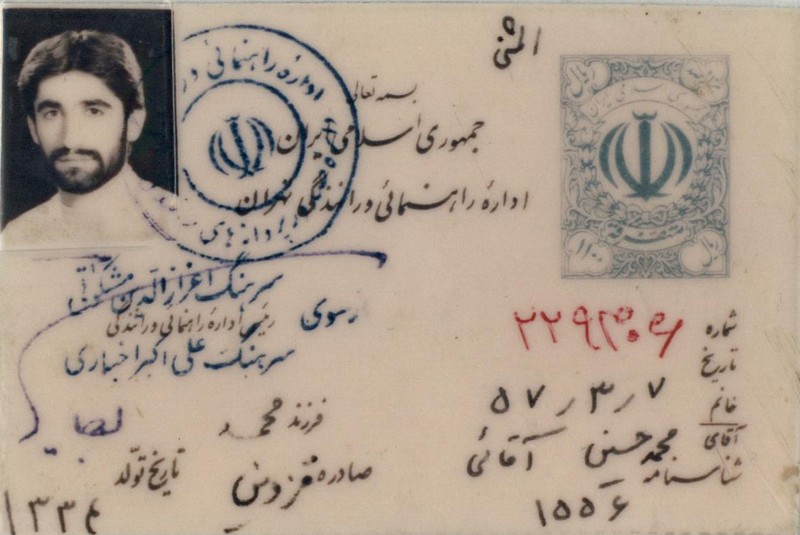 المثنی
بسمه تعالی
جمهوری اسلامی ایران
ادارهٔ راهنمائی و رانندگی تهران
ادارهٔ راهنمائی
جمهوری اسلامی ایران
۱۱۰۰ ریال
سرهنگ
رئیس ادارهٔ راهنمائی و رانندگی
سرهنگ علی اکبر اخباری
شماره
تاریخ ۵۷/۳/۷
خانم
آقای محمد حسین آقائی فرزند محمد
شناسنامه ۱۵۵۶ صادره قزوین تاریخ تولّد